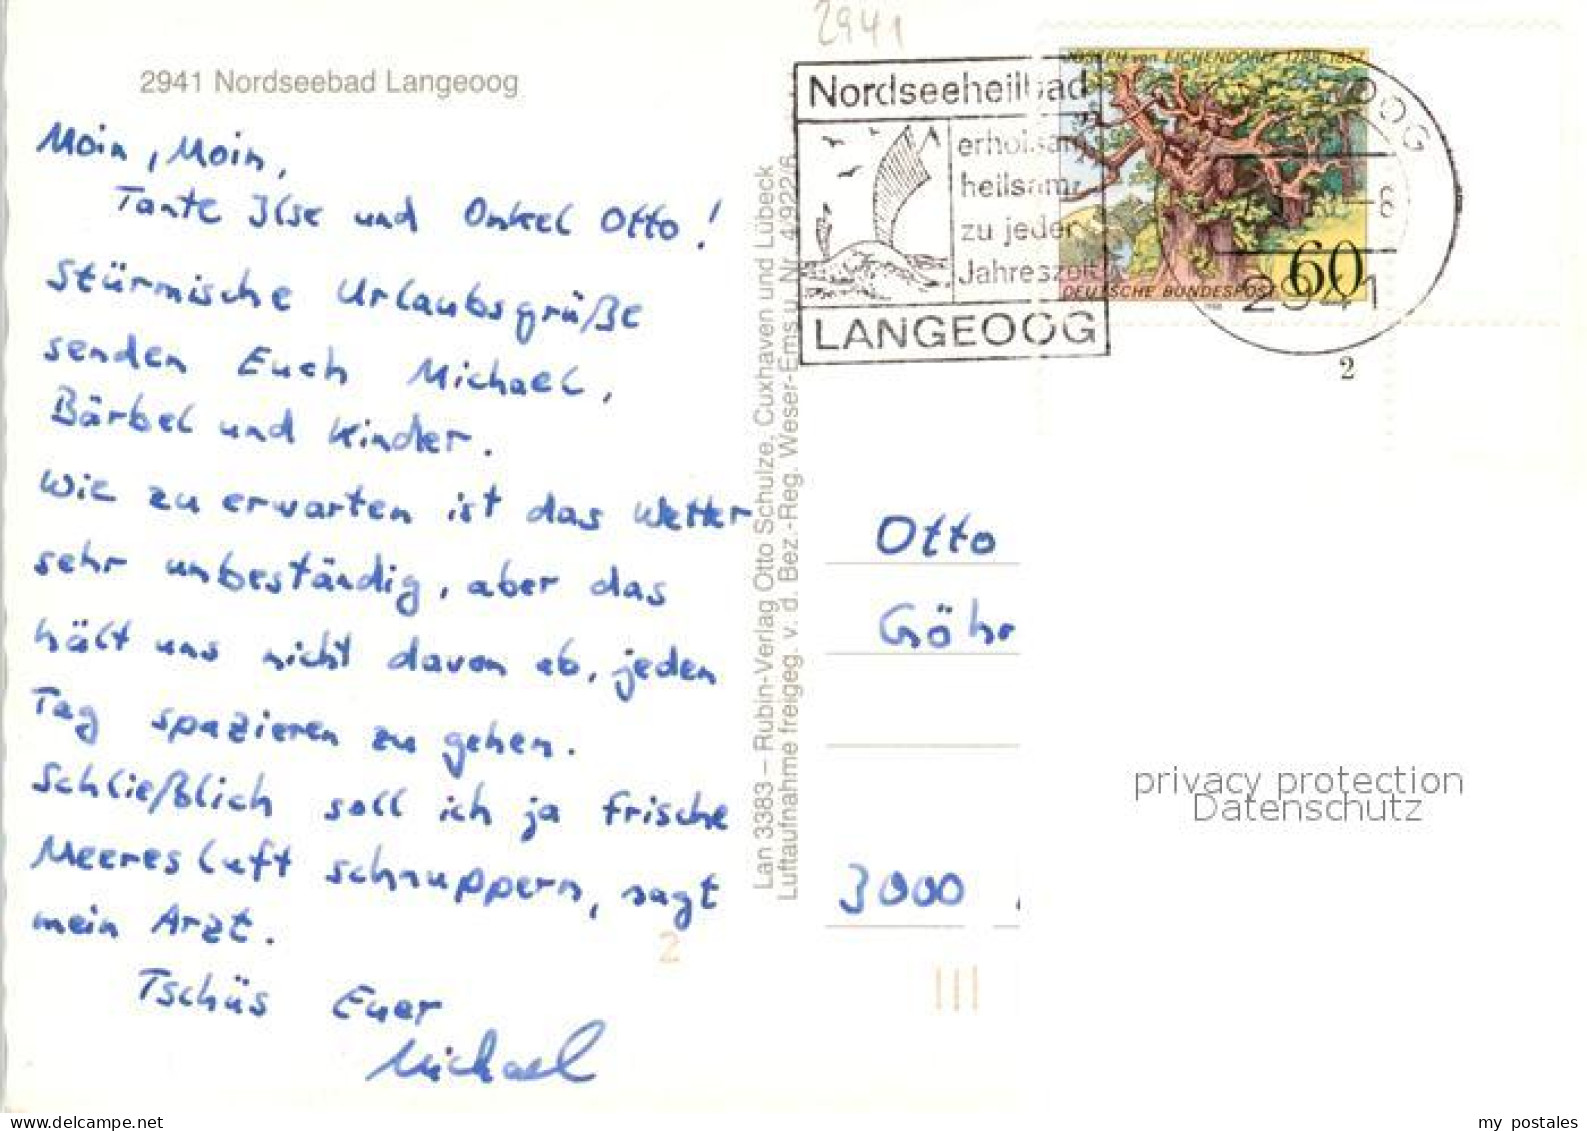 2941
2941 Nordseebad Langeoog
Moin, Moin,
Tante Ilse und Onkel Otto!
Stürmische Urlaubsgrüße
senden Euch Michael,
Bärbel und Kinder.
Wie zu erwarten ist das Wetter
sehr unbeständig, aber das
hält uns nicht davon ab, jeden
Tag spazieren zu gehen.
Schließlich soll ich ja frische
Meeresluft schnuppern, sagt
mein Arzt.
Tschüs Euer
Michael
2
Lan 3383 – Rubin-Verlag Otto Schulze, Cuxhaven und Lübeck
Luftaufnahme freigeg. v. d. Bez.-Reg. Weser-Ems u. Nr. 4/922/6
Nordseeheilbad
erholsam
heilsam
zu jeder
Jahreszeit
LANGEOOG
JOSEPH von EICHENDORFF 1788-1857
60
DEUTSCHE BUNDESPOST
OOG
-8
2941
2
Otto
Göhr
3000
privacy protection
Datenschutz
my postales